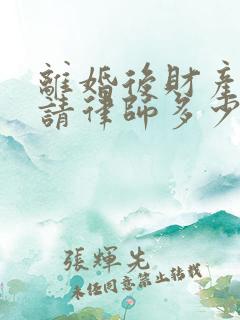 離婚後財產
請律師多少
張輝先
未任同意禁止转载